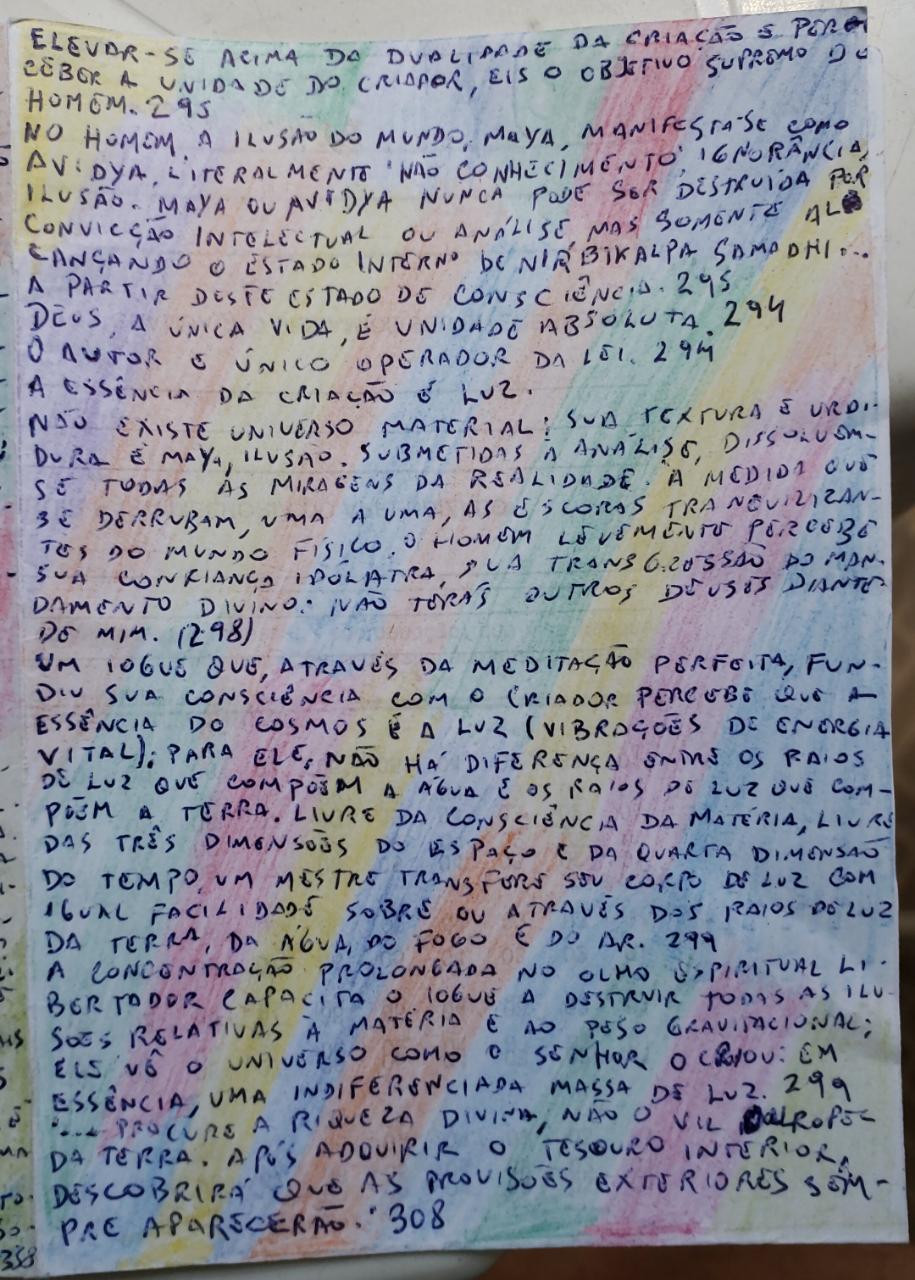 ELEVAR-SE ACIMA DA DUALIDADE DA CRIAÇÃO E PERCE
CEBER A UNIDADE DO CRIADOR, EIS O OBJETIVO SUPREMO DO
HOMEM. 295
NO HOMEM, A ILUSÃO DO MUNDO, MAYA, MANIFESTA-SE COMO
AVIDYA, LITERALMENTE 'NÃO CONHECIMENTO' IGNORÂNCIA,
ILUSÃO. MAYA OU AVIDYA NUNCA PODE SER DESTRUÍDA POR
CONVICÇÃO INTELECTUAL OU ANÁLISE MAS SOMENTE AL
CANÇANDO O ESTADO INTERNO DE NIRBIKALPA SAMADHI...
A PARTIR DESTE ESTADO DE CONSCIÊNCIA. 295
DEUS, A ÚNICA VIDA, É UNIDADE ABSOLUTA. 294
O AUTOR E ÚNICO OPERADOR DA LEI. 294
A ESSÊNCIA DA CRIAÇÃO É LUZ.
NÃO EXISTE UNIVERSO MATERIAL; SUA TEXTURA E URDI-
DURA É MAYA, ILUSÃO. SUBMETIDAS A ANÁLISE, DISSOLVEM-
SE TODAS AS MIRAGENS DA REALIDADE. À MEDIDA QUE
SE DERRUBAM, UMA A UMA, AS ESCORAS TRANQUILIZAN-
TES DO MUNDO FÍSICO, O HOMEM LEVEMENTE PERCEBE
SUA CONFIANÇA IDÓLATRA, SUA TRANSGRESSÃO DO MAN-
DAMENTO DIVINO: NÃO TERÁS OUTROS DEUSES DIANTE
DE MIM. (298)
UM IOGUE QUE, ATRAVÉS DA MEDITAÇÃO PERFEITA, FUN-
DIU SUA CONSCIÊNCIA COM O CRIADOR PERCEBE QUE A
ESSÊNCIA DO COSMOS É A LUZ (VIBRAÇÕES DE ENERGIA
VITAL); PARA ELE, NÃO HÁ DIFERENÇA ENTRE OS RAIOS
DE LUZ QUE COMPÕEM A ÁGUA E OS RAIOS DE LUZ QUE COM-
PÕEM A TERRA. LIVRE DA CONSCIÊNCIA DA MATÉRIA, LIVRE
DAS TRÊS DIMENSÕES DO ESPAÇO E DA QUARTA DIMENSÃO
DO TEMPO, UM MESTRE TRANSFERE SEU CORPO DE LUZ COM
IGUAL FACILIDADE SOBRE OU ATRAVÉS DOS RAIOS DE LUZ
DA TERRA, DA ÁGUA, DO FOGO E DO AR. 299
A CONCENTRAÇÃO PROLONGADA NO OLHO ESPIRITUAL LI-
BERTADOR CAPACITA O IOGUE A DESTRUIR TODAS AS ILU-
SÕES RELATIVAS À MATÉRIA E AO PESO GRAVITACIONAL;
ELE VÊ O UNIVERSO COMO O SENHOR O CRIOU: EM
ESSÊNCIA, UMA INDIFERENCIADA MASSA DE LUZ. 299
'... PROCURE A RIQUEZA DIVINA, NÃO O VIL OUROPEL
DA TERRA. APÓS ADQUIRIR O TESOURO INTERIOR,
DESCOBRIRÁ QUE AS PROVISÕES EXTERIORES SEM-
PRE APARECERÃO.' 308